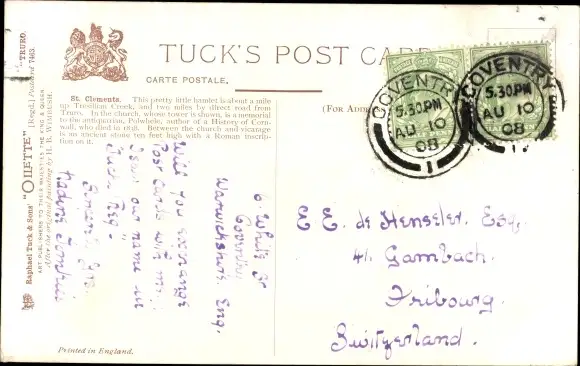 TUCK'S POST CARD
CARTE POSTALE.
(For Add
St. Clements. This pretty little hamlet is about a mile
up Tresillian Creek, and two miles by direct road from
Truro. In the church, whose tower is shown, is a memorial
to the antiquarian, Polwhele, author of a History of Corn-
wall, who died in 1838. Between the church and vicarage
is an ancient stone ten feet high with a Roman inscrip-
tion on it.
COVENTRY
5.30PM
AU 10
08
1
COVENTRY
5.30PM
AU 10
08
1
6. White St
Coventry
Warwickshire. Eng.
Will you exchange
Post Cards with me.
I saw your name in
Tuck Reg-
Sincerely yrs.
E. E. de Henseler. Esq.
41. Gambach.
Fribourg.
Switzerland.
Raphael Tuck & Sons' "OILETTE" [Regd.] Postcard 7463. "TRURO.
ART PUBLISHERS TO THEIR MAJESTIES THE KING & QUEEN.
After the original painting by H. B. WIMBUSH.
Printed in England.